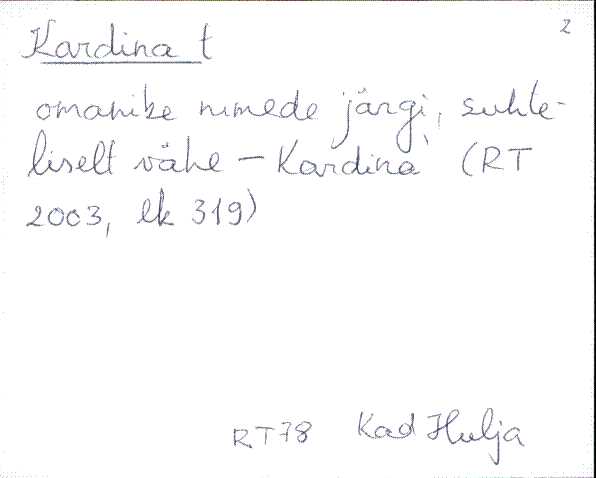 2
Kardina t
omanike nimede järgi, suhte-
liselt vähe – Kardina` (RT
2003, lk 319)
RT78 Kad Hulja